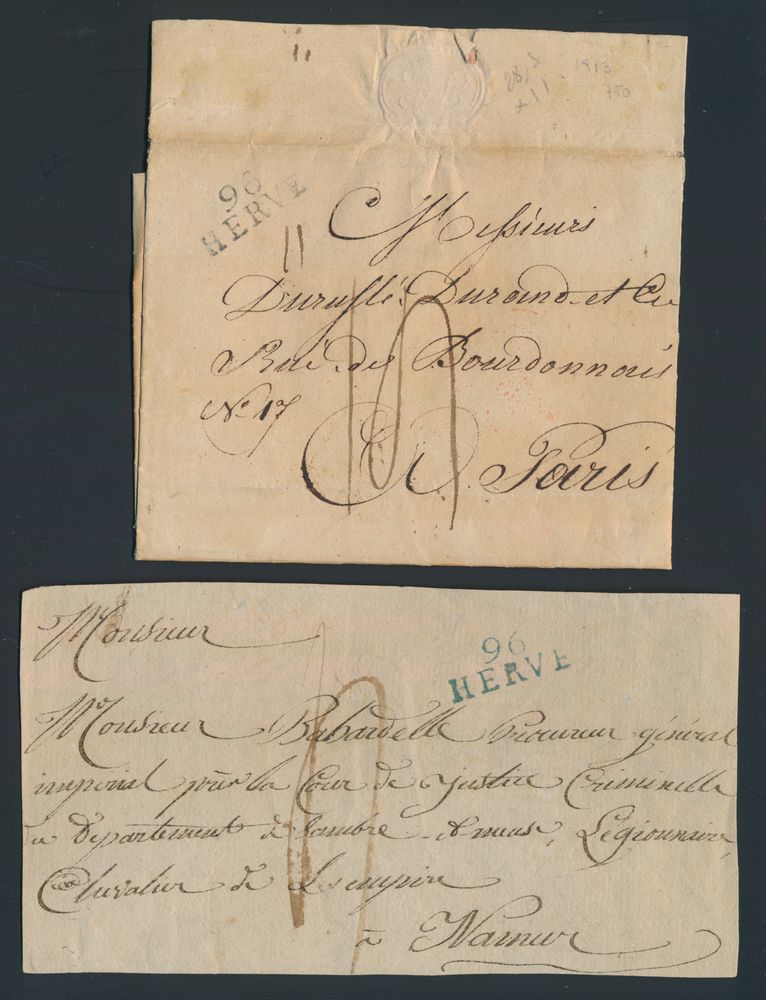 1813
750
96
HERVE
Messieurs
Durufflé Durand et Cie
Rue des Bourdonnois
No. 17
A Paris
96
HERVE
Monsieur
Monsieur Babardelle Procureur général
imperial près la Cour de Justice Criminelle
du Département de Sambre et meuse, Légionnaire
Chevalier de L'empire
à Namur